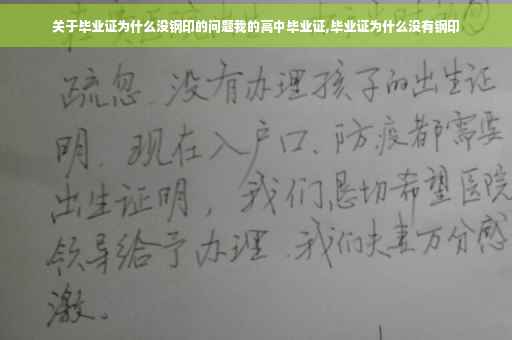 关于毕业证为什么没钢印的问题我的高中毕业证,毕业证为什么没有钢印
疏忽、没有办理孩子的出生证
明、现在入户口、防疫都需要
出生证明，我们恳切希望医院
领导给予办理、我们夫妻万分感
激。